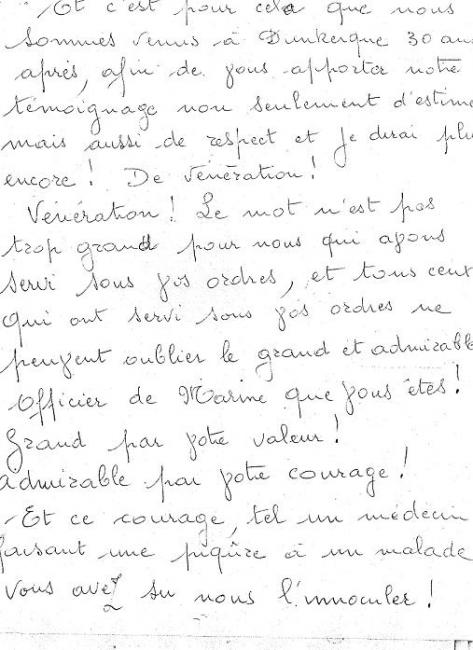 Et c'est pour cela que nous
sommes venus à Dunkerque 30 ans
après, afin de vous apporter notre
témoignage non seulement d'estime
mais aussi de respect et je dirai plus
encore! De vénération!
Vénération! Le mot n'est pas
trop grand pour nous qui avons
servi sous vos ordres, et tous ceux
qui ont servi sous vos ordres ne
peuvent oublier le grand et admirable
Officier de Marine que vous êtes!
Grand par votre valeur!
admirable par votre courage!
Et ce courage, tel un médecin
faisant une piqûre à un malade
vous avez su nous l'innoculer!